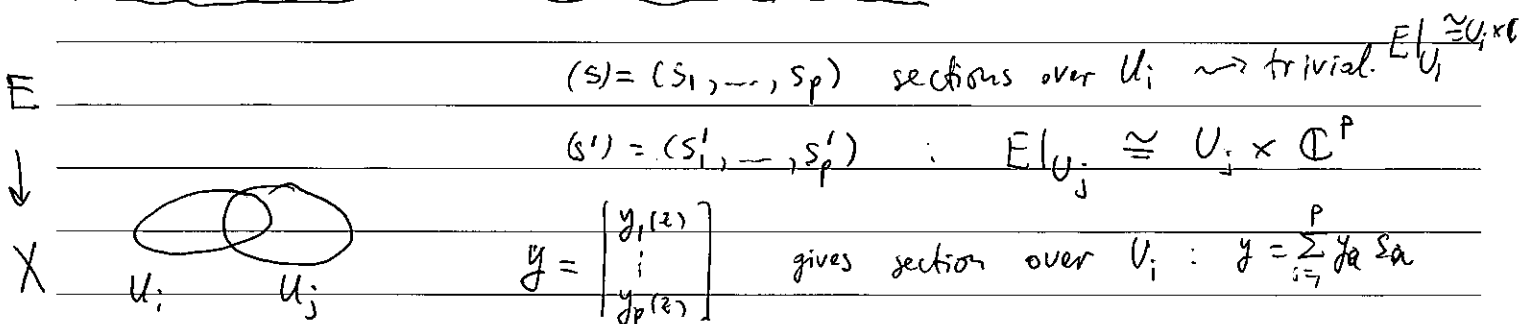 (s) = (s_1, ..., s_p) sections over U_i ⇝ trivial. E|_{U_i} ≅ U_i ×
E
(s') = (s'_1, ..., s'_p) : E|_{U_j} ≅ U_j × ℂ^p
↓
X U_i U_j y = [y_1(z) ⋮ y_p(z)] gives section over U_i : y = \sum_{i=1}^{p} y_a s_a